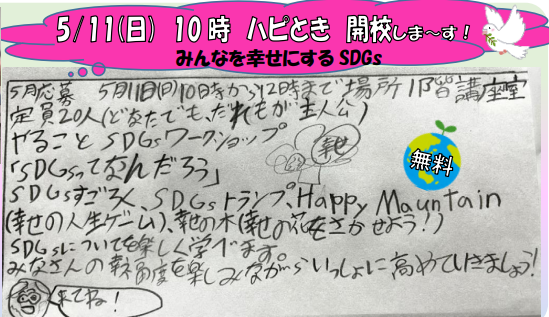 5/11(日) 10時 ハピとき 開校しま〜す!
みんなを幸せにするSDGs
5月応募 5月11日(日)10時から12時まで 場所 1階講座室
定員20人(どなたでも、だれもが主人公)
やること SDGsワークショップ
「SDGsってなんだろう」
幸せ
無料
SDGsすごろく、SDGsトランプ、Happy Mauntain
(幸せの人生ゲーム)、幸せの木(幸せの花をさかせよう!)
SDGsについてを楽しく学べます。
みなさんの幸福度を楽しみながらいっしょに高めていきましょう!
来てね!